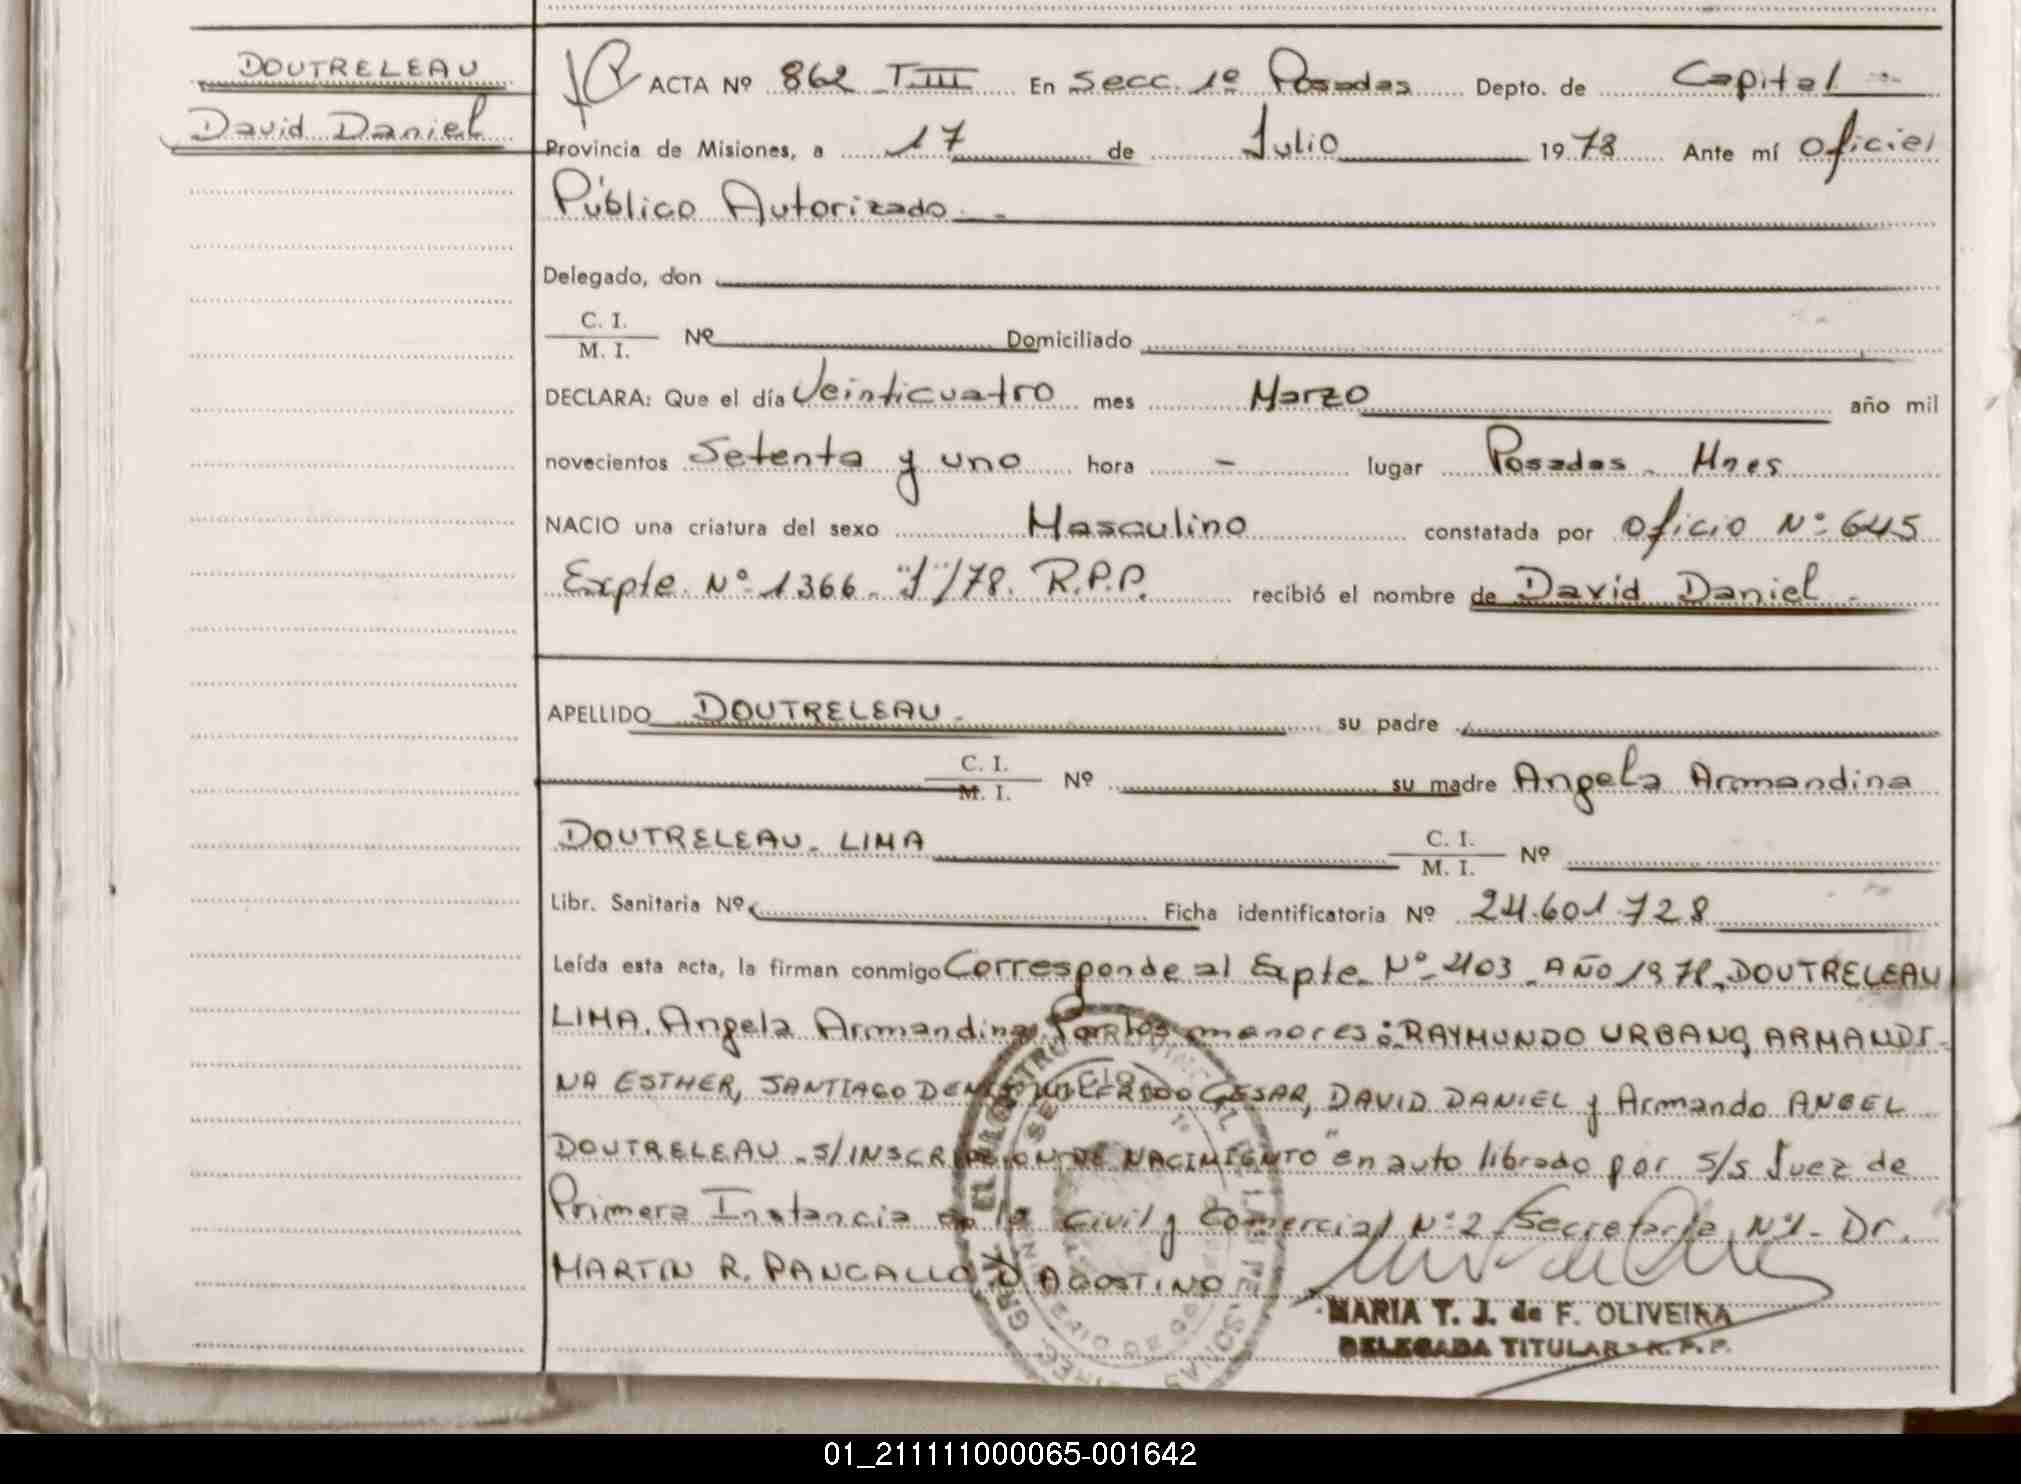 DOUTRELEAU
David Daniel
ACTA Nº 862 T III En Secc. 1º Posadas Depto. de Capital
Provincia de Misiones, a 17 de Julio 1978 Ante mí Oficial
Público Autorizado
Delegado, don
C. I.
M. I. Nº Domiciliado
DECLARA: Que el día Veinticuatro mes Marzo año mil
novecientos Setenta y uno hora - lugar Posadas - Mnes
NACIO una criatura del sexo Masculino constatada por Oficio Nº 645
Expte. Nº 1366 - "J"/78. R.P.P. recibió el nombre de David Daniel -
APELLIDO DOUTRELEAU - su padre
C. I.
M. I. Nº su madre Angela Armandina
DOUTRELEAU - LIMA C. I.
M. I. Nº
Libr. Sanitaria Nº Ficha identificatoria Nº 24.601.728
Leída esta acta, la firman conmigo Corresponde al Expte. Nº 403 - AÑO 1978, DOUTRELEAU
LIMA. Angela Armandina Por los menores: RAYMUNDO URBANO, ARMANDI-
NA ESTHER, SANTIAGO CESAR, DAVID DANIEL y Armando ANGEL
DOUTRELEAU - S/INSCRIPCION DE NACIMIENTO" en auto librado por S/S Juez de
Primera Instancia en lo Civil y Comercial Nº 2 Secretaría Nº 1 - Dr.
MARTIN R. PANGALLO D'AGOSTINO
MARIA T. J. de F. OLIVEIRA
DELEGADA TITULAR - R. P. P.
01_211111000065-001642